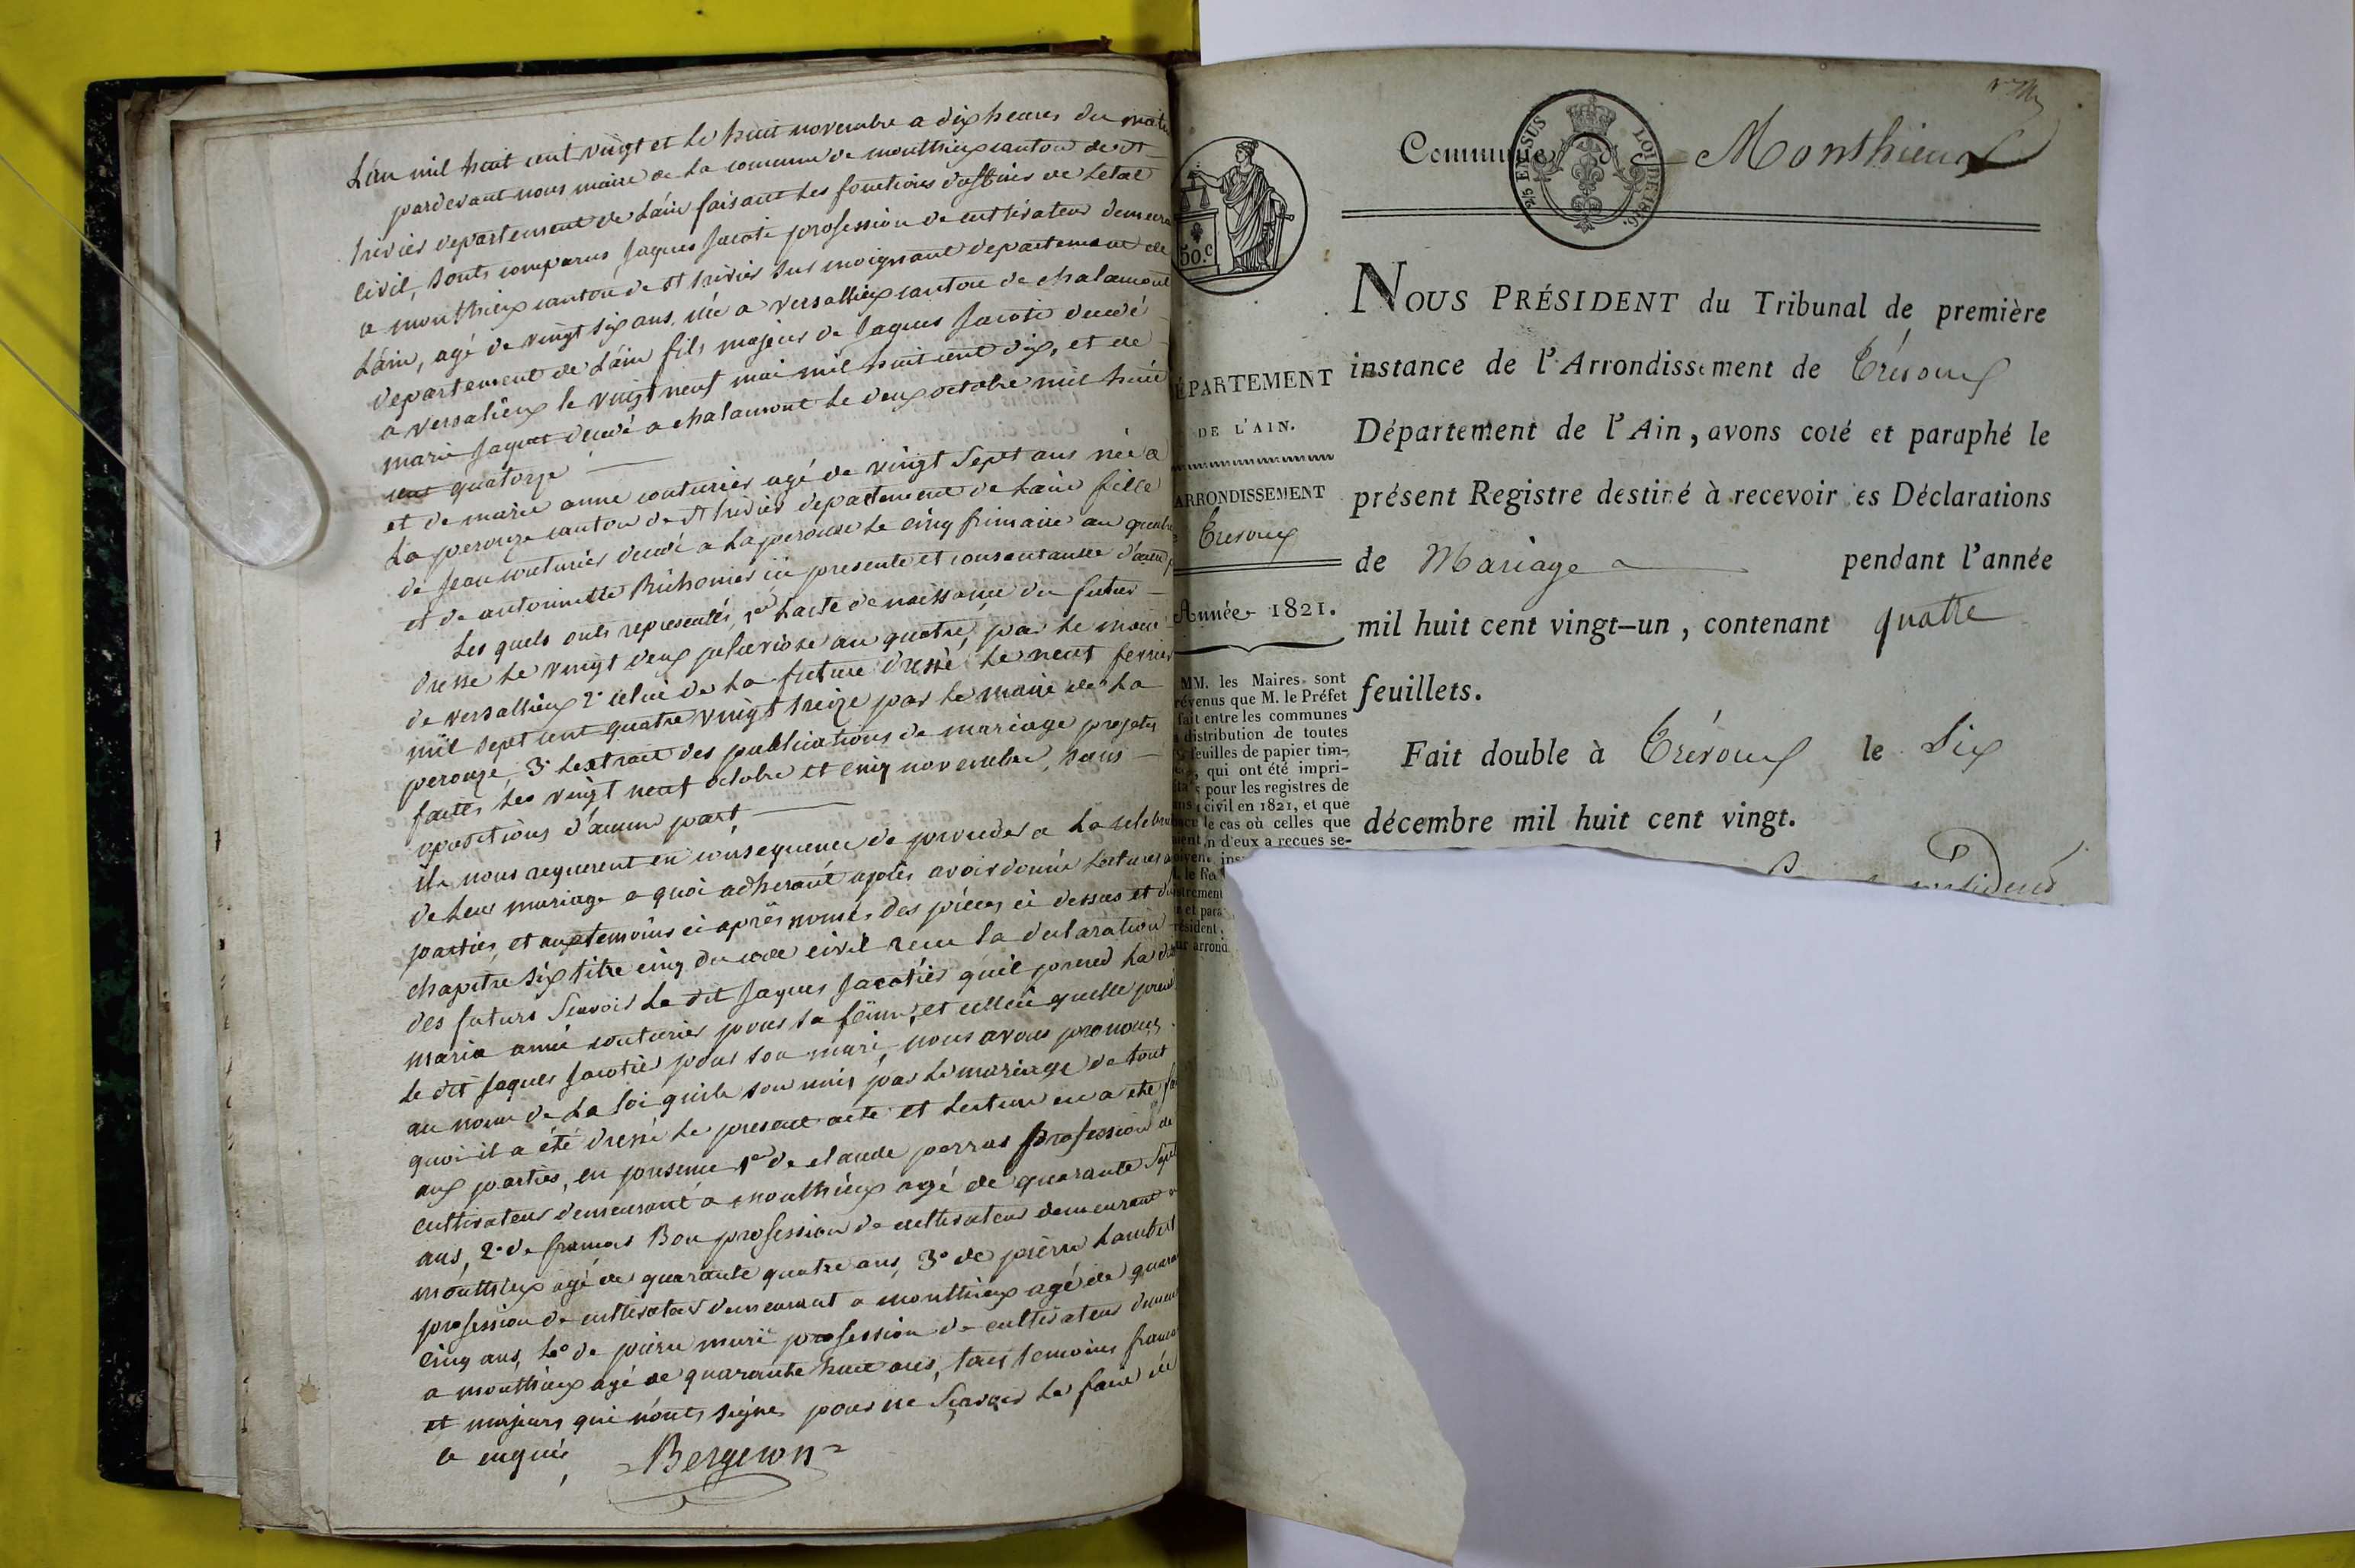 L'an mil huit cent vingt et le huit novembre a dix heures du matin
pardevant nous maire de la commune de monthieux canton de st
trivier departement de L'ain faisant les fonctions d'officier de L'etat
Civil, sonts comparus Jaques Jacoti profession de cultivateur demeura
a monthieux canton de st trivier sur moignant departement de
L'ain, agé de vingt six ans, née a versallieux canton de chalamont
departement de L'ain fils majeur de Jaques Jacoti decedé
a versalieux le vingt neuf mai mil huit cent dix, et de
marie Jaquet decedé a chalamont le deux octobre mil huit
cent quatorze
et de marie anne couturier agé de vingt Sept ans née a
La perouze canton de st trivier departement de L'ain fille
de Jean couturier decedé a La perouze le cinq frimaire an quatre
et de antoinette Richonier ici presente et consentante d'autre p
Les quels onts representés, 1er L'acte de naissance du futur
dresse le vingt deux pluviose an quatre, par le maire
de versallieux 2° celui de La future dressé le neuf fevrier
mil sept cent quatre vingt treize par le maire de La
perouze, 3° L'extrait des publications de mariage projetés
faites les vingt neuf octobre et cinq novembre, sans
opositions d'aucune part,
ils nous requerent en consequence de proceder a La celebra
de leur mariage a quoi adherant après avoir donné Lectures a
parties, et aux temoins ci après només des pièces ci dessus et du
chapitre six titre cinq du code civil recu la declaration
des futurs Scavoir Le dit Jaques Jacotier quil prend La dite
maria anne couturier pour sa fâme, et celleci quelle prend
Le dit Jaques Jacotier pour son mari, nous avons prononcés
au nom de La loi quils son unis par Le mariage de tout
quoi il a été dressé Le present acte et Lecture en a été fa
aux parties, en presence 1er de claude perras profession de
cultivateur demeurant a monthieux agé de quarante Sept
ans, 2° de francois Bon profession de cultivateur demeurant a
monthieux agé de quarante quatre ans, 3° de pierre Lambert
profession de cultivateur demeurant a monthieux agé de quara
cinq ans, 4° de pierre muri profession de cultivateur demeur
a monthieux agé de quarante huit ans, tous temoins francai
et majeurs qui n'onts signés pour ne Scavoir Le faire de
ce enquis
Bergeron
Commune de Monthieux
2/3 EN SUS
LOI DE 1816.
50.c
NOUS PRÉSIDENT du Tribunal de première
instance de l'Arrondissement de Trévoux
Département de l'Ain, avons coté et paraphé le
présent Registre destiné à recevoir es Déclarations
de Mariage pendant l'année
mil huit cent vingt-un, contenant quatre
feuillets.
Fait double à Trévoux le Six
décembre mil huit cent vingt.
président
ÉPARTEMENT
DE L'AIN.
ARRONDISSEMENT
Trevoux
Année 1821.
MM. les Maires sont
révenus que M. le Préfet
fait entre les communes
distribution de toutes
feuilles de papier tim-
qui ont été impri-
pour les registres de
civil en 1821, et que
le cas où celles que
n d'eux a reçues se-
ins
le
et para
résident,
arrond